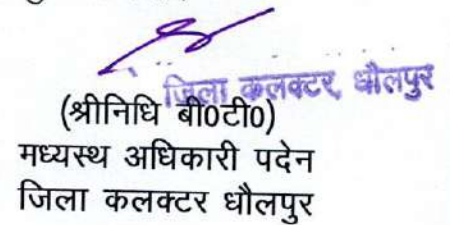 जिला कलक्टर, धौलपुर
(श्रीनिधि बी0टी0)
मध्यस्थ अधिकारी पदेन
जिला कलक्टर धौलपुर